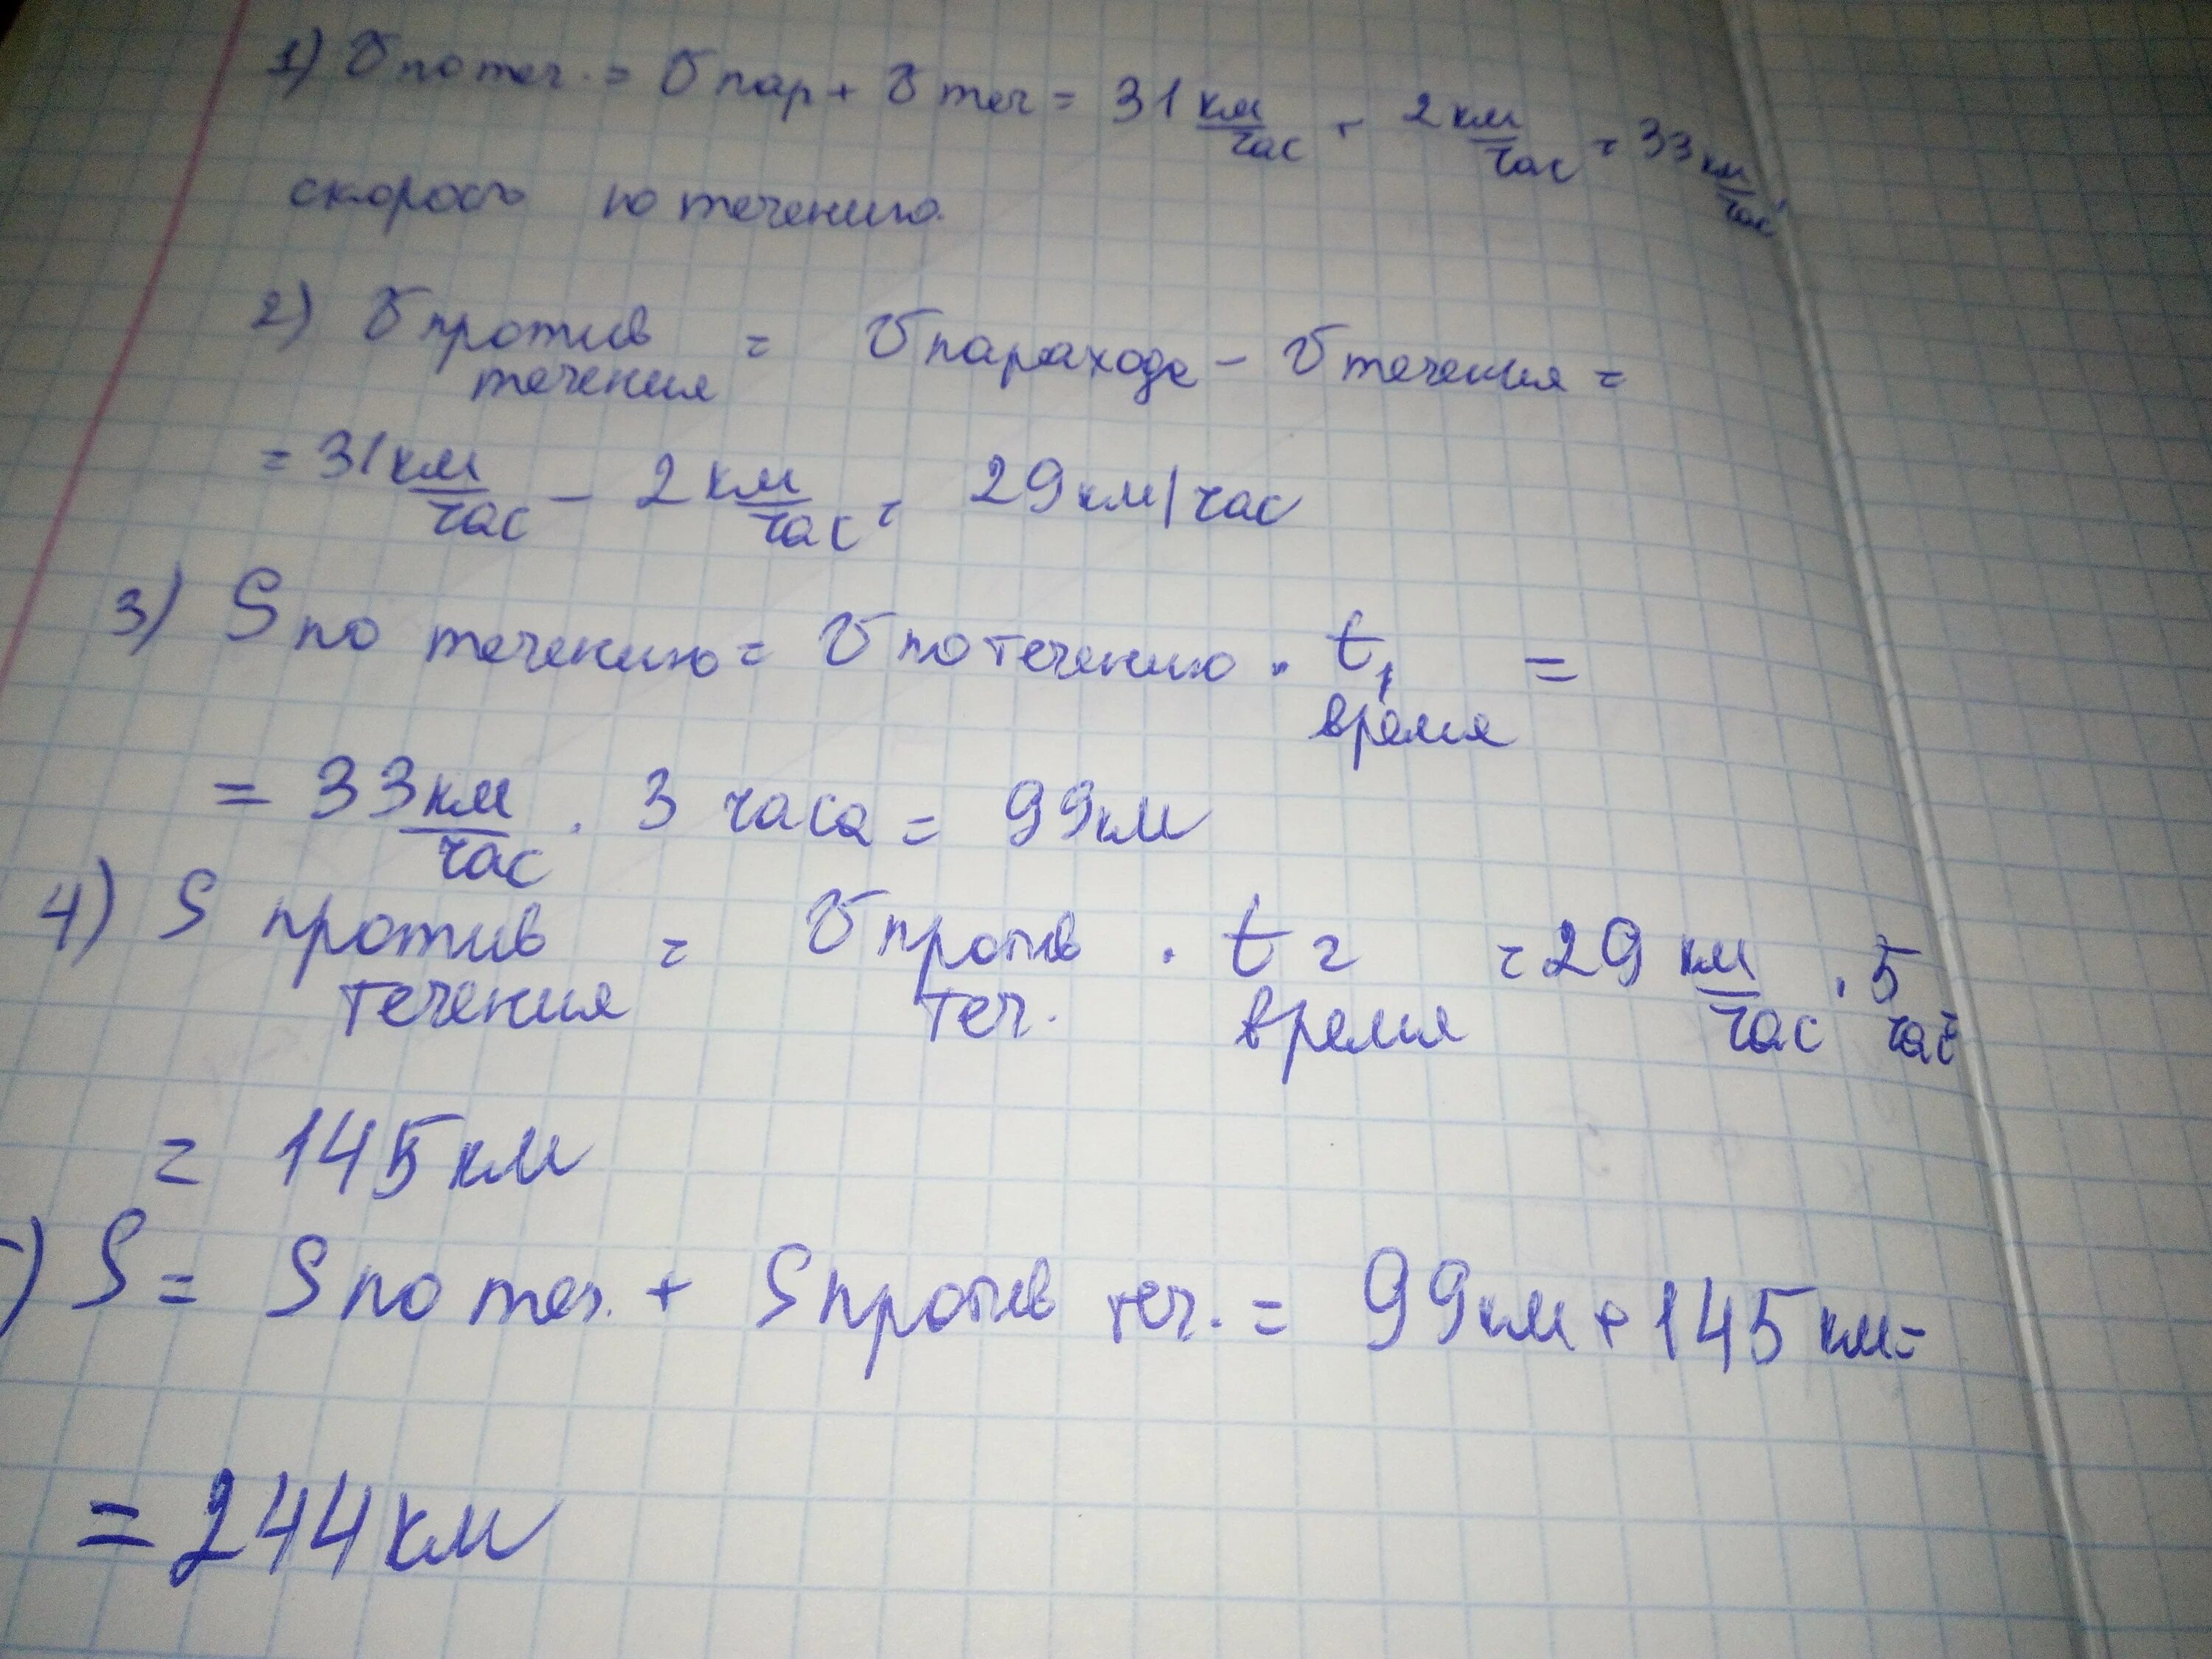 1) υ по теч. = υ пар + υ теч = 31 км/час + 2 км/час = 33 км/час
скорость по течению.
2) υ против течения = υ парахода - υ течения =
= 31 км/час - 2 км/час = 29 км/час
3) S по течению = υ по течению · t₁ время =
= 33 км/час · 3 часа = 99 км
4) S против течения = υ против теч. · t₂ время = 29 км/час · 5 час
= 145 км
) S = S по теч. + S против теч. = 99 км + 145 км =
= 244 км